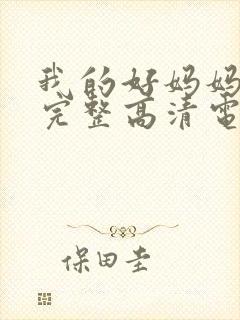 我的好妈妈
完整高清电
保田圭